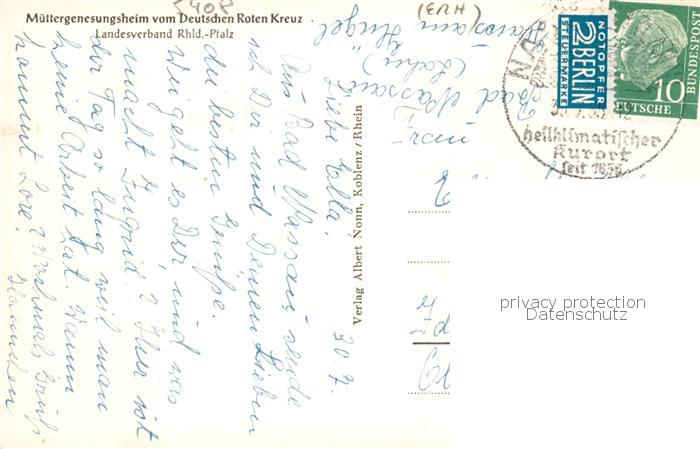 Müttergenesungsheim vom Deutschen Roten Kreuz
Landesverband Rhld.-Pfalz
30 7.
Liebe Ella!
Aus Bad Nassau sende
ich Dir und Deinen Lieben
die besten Grüße.
Wie geht es Dir, und was
macht Ingrid? Hier ist
der Tag so lang weil man
keine Arbeit hat. Wann
kommt Lore? Nochmals Gruß
Hannchen
Verlag Albert Nonn, Koblenz / Rhein
Bad Nassau
(Lahn)
NOTOPFER
2 BERLIN
STEUERMARKE
10
DEUTSCHE
BUNDESPOST
heilklimatischer
Kurort
seit 1855
privacy protection
Datenschutz